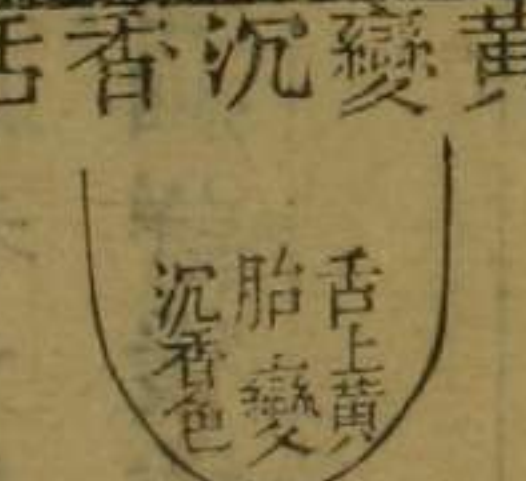 黄變沉香舌
舌上黄
胎變
沉香色